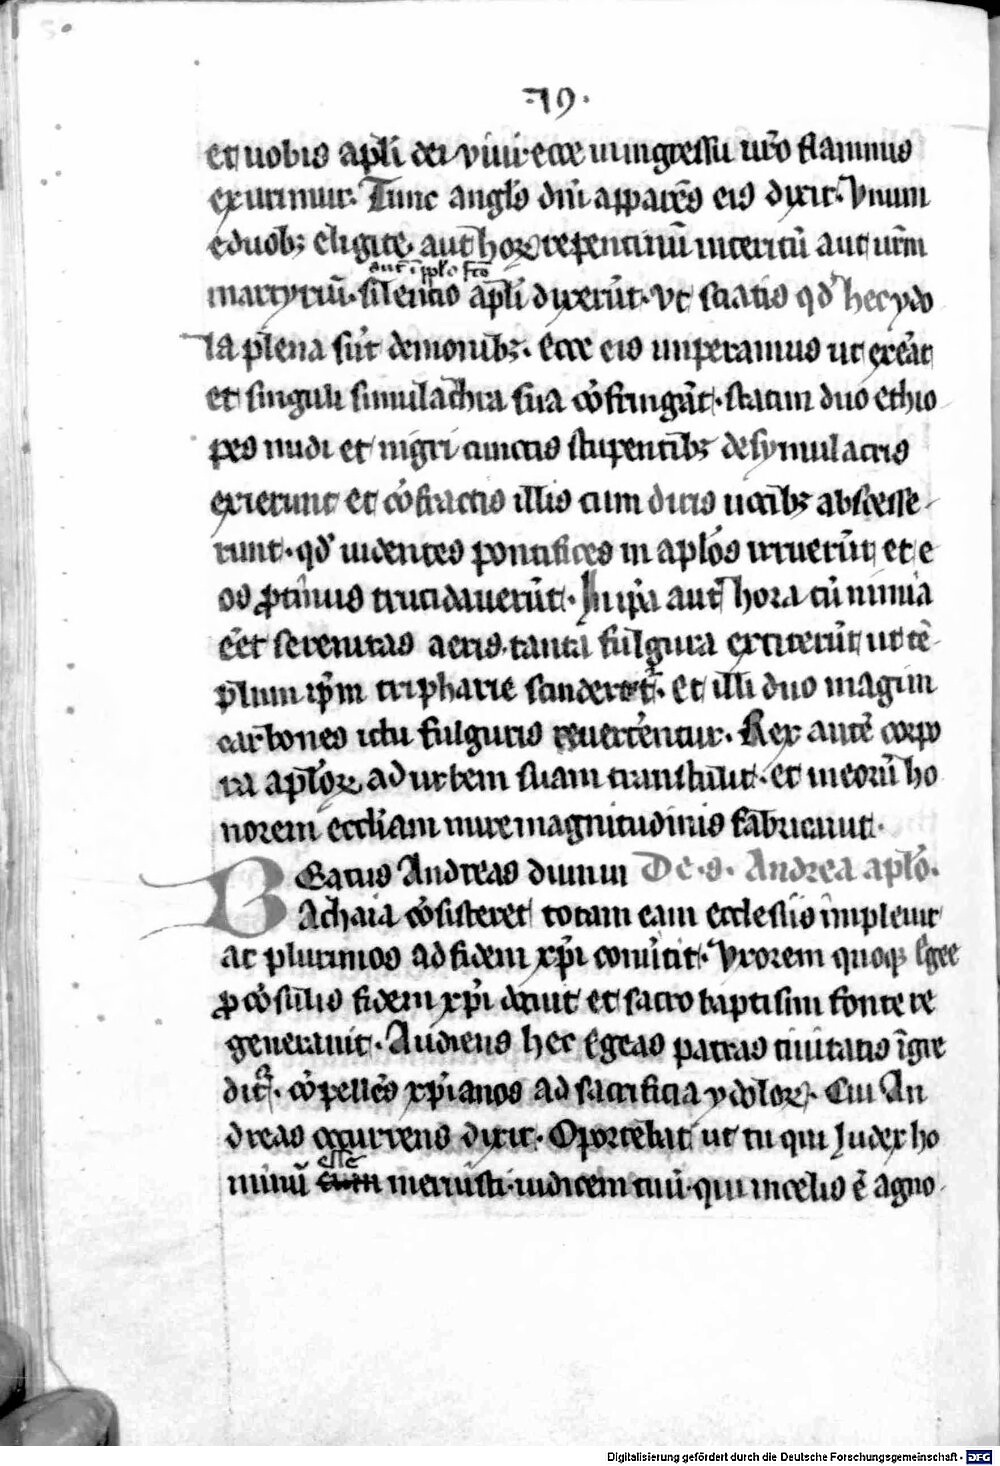 ·79·
et uobis apl̄i dei viui· ecce in ingressu ur̄o flammis
exurimur· Tunc angl̄s dn̄i apparēs eis dixit· Vnum
e duobꝫ eligite· aut hoꝝ repentinū interitū aut ur̄m
aut īpl̄o fc̄o
martyriū· silencio apl̄i dixerūt· Vt sciatis qd̄ hec ydo
la plena sūt demonibꝫ· ecce eis imperamus ut exeāt
et singuli simulachra sua cōfringāt· statim duo ethio
pes nudi et nigri cunctis stupentibꝫ de symulacris
exierunt et cōfractis illis cum diris uocibꝫ abscesse-
runt· qd̄ uidentes pontifices in apl̄os irruerūt et e
os ꝓtinus trucidauerūt· In ip̄a aut̄ hora cū nimia
eēt serenitas aeris· tanta fulgura extiterūt ut tē-
plum ip̄m tripharie scinderet̄· et illi duo magi in
carbones ictu fulguris reuertentur· Rex autē corpo
ra apl̄oꝝ ad urbem suam transtulit· et in eorū ho
norem eccl̄iam mire magnitudinis fabricauit·
BEatus Andreas dum in De· s· Andrea apl̄o·
Achaia cōsisteret totam eam ecclesiis impleuit
ac plurimos ad fidem xp̄i conūtit· Vxorem quoqꝫ Egee
ꝓcōsulis fidem xp̄i docuit et sacro baptismi fonte re
generauit· Audiens hec Egeas patras ciuitatis īgre
dit̄· cōpellēs xp̄ianos ad sacrificia ydoloꝝ· Cui An
dreas occurrens dixit· Oportebat ut tu qui Iudex ho
esse
minū meruisti· iudicem tuū· qui in celis ē agno-
Digitalisierung gefördert durch die Deutsche Forschungsgemeinschaft · DFG